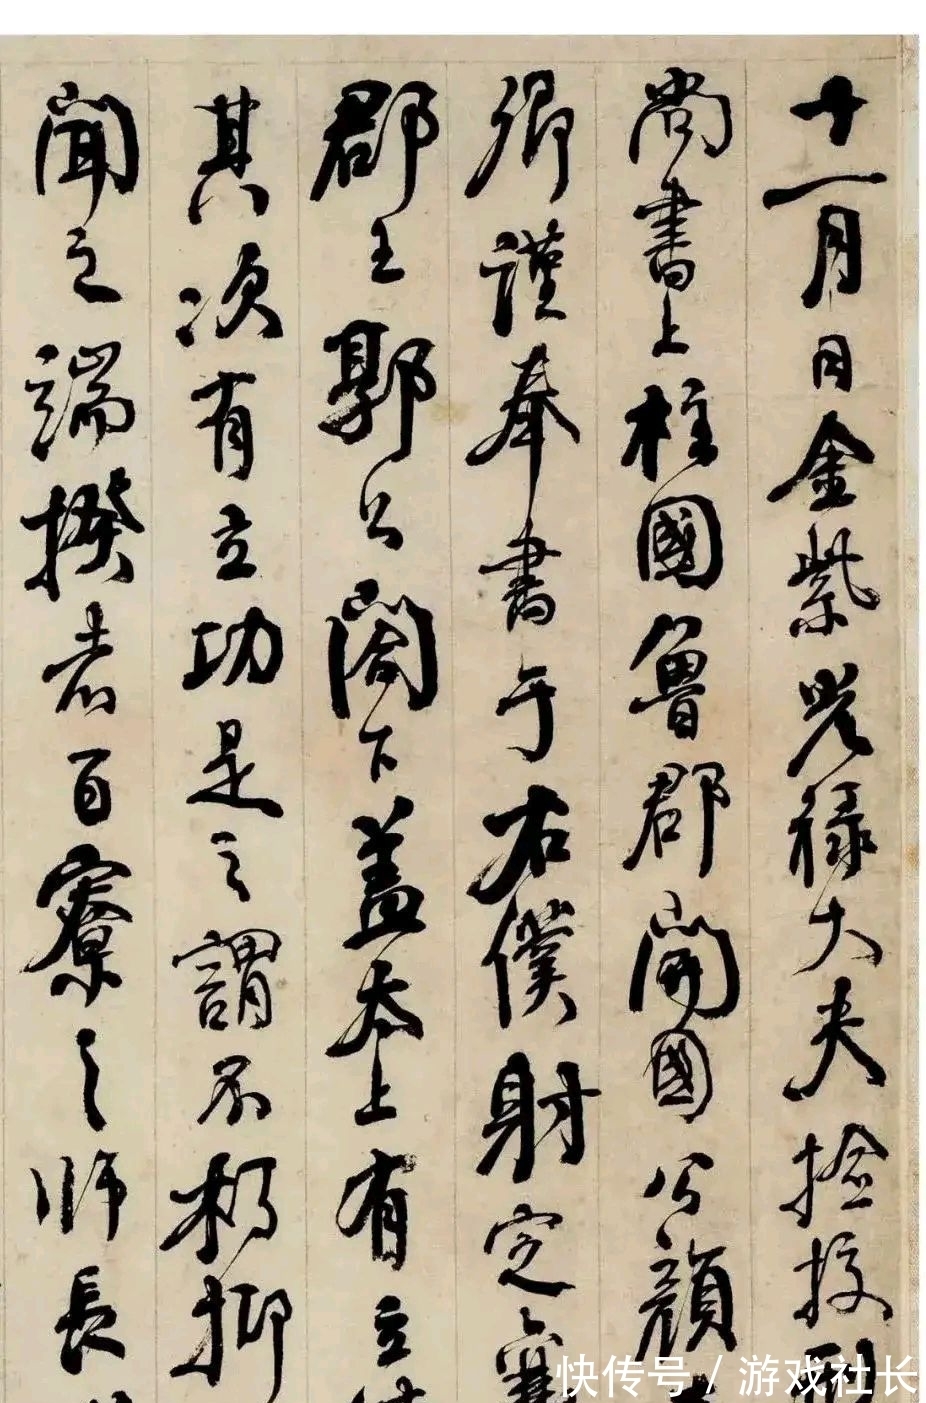 十一月日金紫光禄大夫捡挍刑
尚書上柱國魯郡開國公顏
卿謹奉書于右僕射定襄
郡王郭公閤下蓋太上有立德
其次有立功是之謂不朽抑
聞之端揆者百寮之師長
快传号/游戏社长